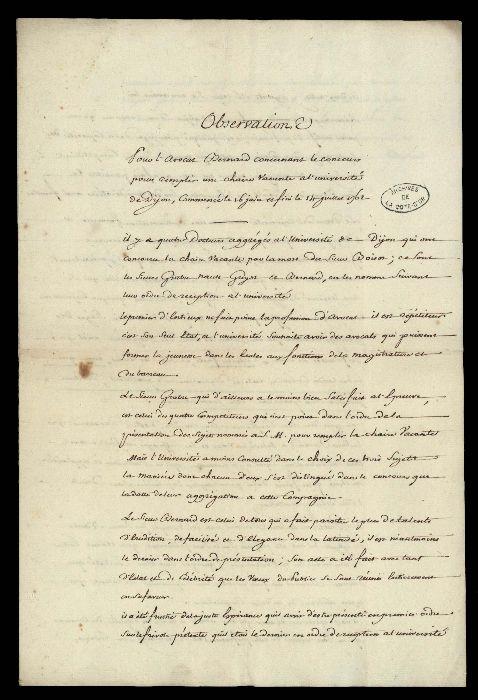 Observations
Pour l'Avocat Bernard concernant le concours
pour remplir une chaire Vacante a l'université
de Dijon, Commencé le 16 juin et fini le 14 juillet 1762
ARCHIVES
DE
LA COTE-D'OR
il y a quatre Docteurs aggrégés a l'Université de Dijon qui ont
concouru la chaire Vacante par la mort du Sieur Boisot ; ce sont
les Sieurs Grostu Gagot et Bernard, en les nommant Suivant
leur ordre de reception a l'université
le premier d'entr'eux ne fait point la profession d'avocat il est répétiteur
c'est son Seul Etat, et l'université Souhaite avoir des avocats qui puissent
former la jeunesse dans les Ecoles aux fonctions de la magistrature et
du barreau.
Le Sieur Grostu qui d'ailleurs a le moins bien Satisfait a l'Epreuve,
est celui des quatre Compétiteurs qui n'est point dans l'ordre de la
présentation des Sujets nommés a S. M. pour remplir la chaire Vacante
Mais l'Université a moins Consulté dans le choix de ces trois Sujets
la maniere dont chacun d'eux s'est distingué dans le concours que
la datte de leur aggrégation a cette Compagnie
Le Sieur Bernard est celui de tous qui a fait paroitre le plus de talents
d'Erudition, de facilité et d'Elegance dans la latinité, il est néantmoins
le dernier dans l'ordre de présentation ; Son acte a été fait avec tant
d'Eclat et de Célébrité que les Voeux du Public Se Sont réunis Entierement
en Sa faveur
il a été frustré de la juste Espérance qu'il avoit d'estre présenté en premier ordre
Sur le frivole prétexte qu'il étoit le dernier en ordre de reception a l'université